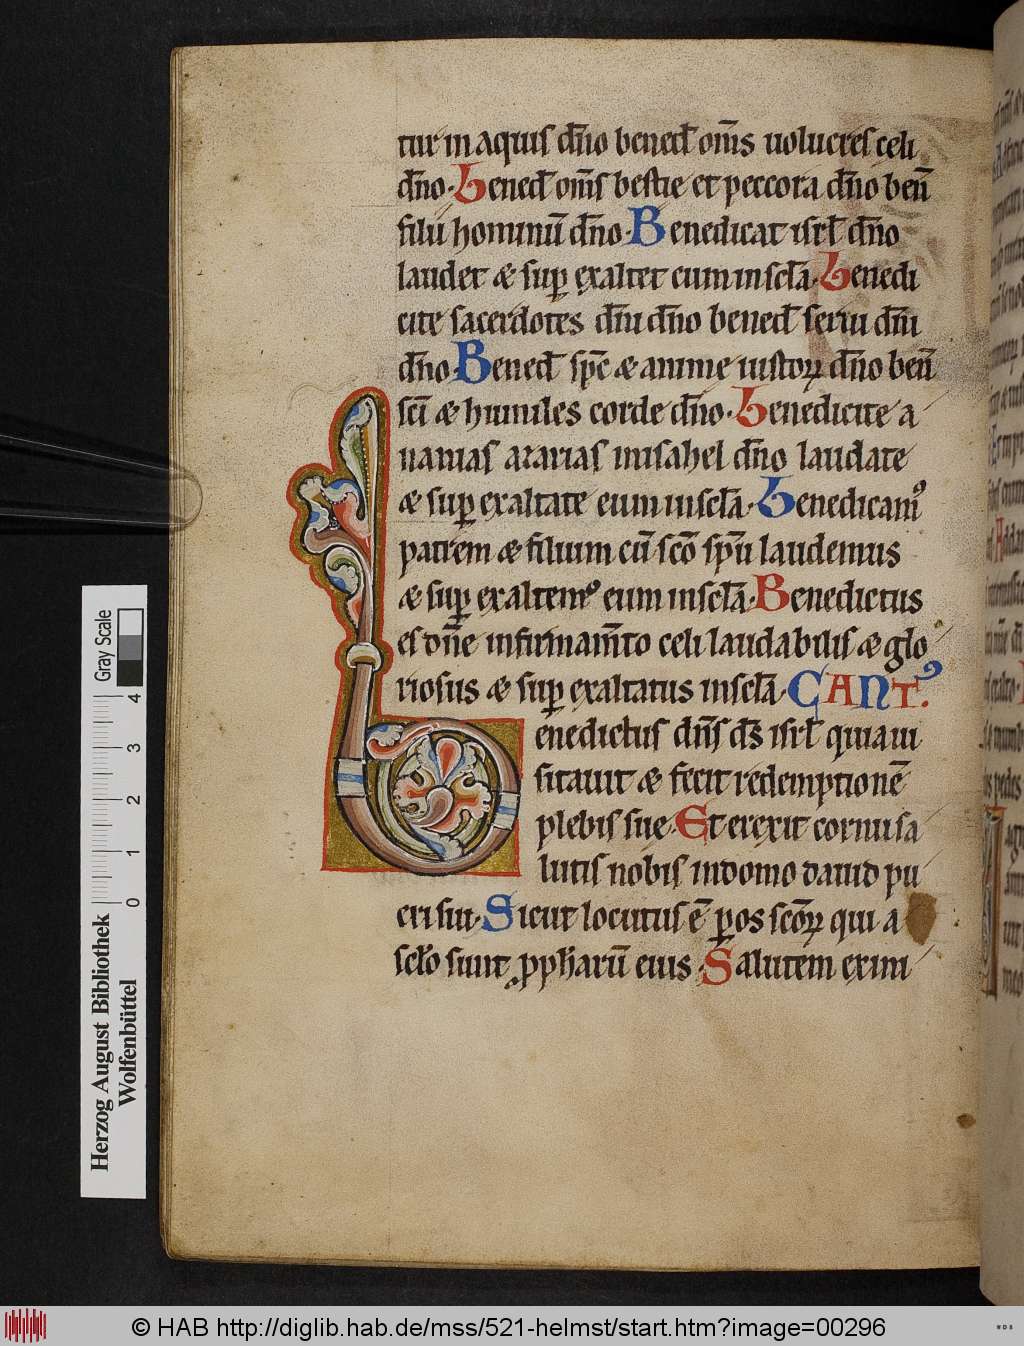 tur in aquis dn̄o bened̄ om̄s uolucres celi
dn̄o. Bened̄ om̄s bestie et peccora dn̄o ben̄
filii hominū dn̄o. Benedicat isrl̄ dn̄o
laudet & suꝑ exaltet eum in scl̄a. Benedi
cite sacerdotes dn̄i dn̄o bened̄ serui dn̄i
dn̄o. Bened̄ spc̄ & anime iustoꝝ dn̄o ben̄
sc̄i & humiles corde dn̄o. Benedicite a
nanias azarias misahel dn̄o laudate
& suꝑ exaltate eum in scl̄a. Benedicamꝰ
patrem & filium cū sc̄o sp̄u laudemus
& suꝑ exaltemꝰ eum in scl̄a. Benedictus
es dn̄e in firmam̄to celi laudabilis & glo
riosus & suꝑ exaltatus in scl̄a. CANTꝰ.
Benedictus dn̄s ds̄ isrl̄ quia ui
sitauit & fecit redemptionē
plebis sue. Et erexit cornu sa
lutis nobis in domo dauid pu
eri sui. Sicut locutus ē ꝑ os sc̄oꝝ qui a
sclō sunt ꝓpharū eius. Salutem ex ini
Herzog August Bibliothek
Wolfenbüttel
0 1 2 3 4
Gray Scale
© HAB http://diglib.hab.de/mss/521-helmst/start.htm?image=00296